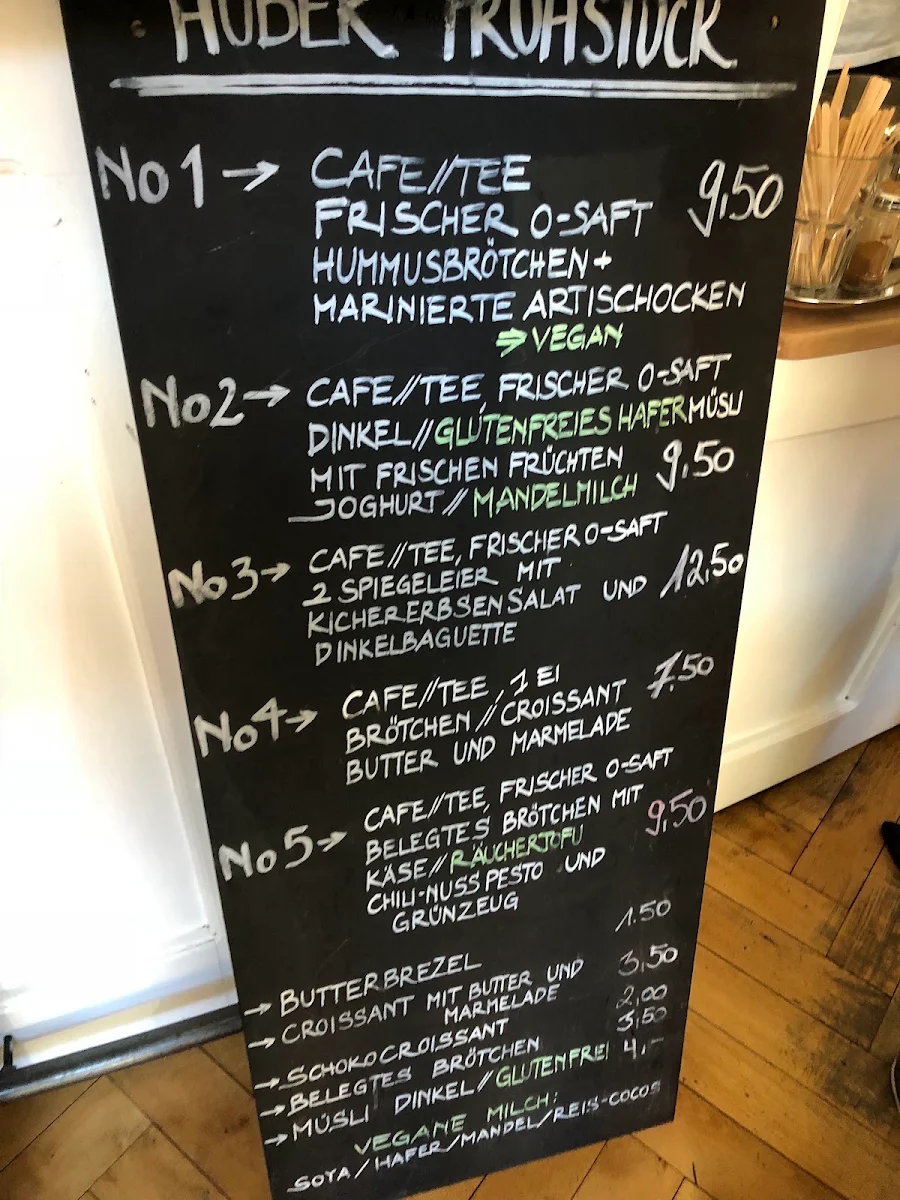 HUBER FRÜHSTÜCK
No 1 → CAFE//TEE
FRISCHER O-SAFT 9,50
HUMMUSBRÖTCHEN +
MARINIERTE ARTISCHOCKEN
⇒ VEGAN
No 2 → CAFE//TEE, FRISCHER O-SAFT
DINKEL//GLUTENFREIES HAFERMÜSLI
MIT FRISCHEN FRÜCHTEN 9,50
JOGHURT // MANDELMILCH
No 3 → CAFE//TEE, FRISCHER O-SAFT
2 SPIEGELEIER MIT
KICHERERBSENSALAT UND 12,50
DINKELBAGUETTE
No 4 → CAFE//TEE, 1 EI 7,50
BRÖTCHEN // CROISSANT
BUTTER UND MARMELADE
No 5 → CAFE//TEE, FRISCHER O-SAFT
BELEGTES BRÖTCHEN MIT 9,50
KÄSE//RÄUCHERTOFU
CHILI-NUSS PESTO UND
GRÜNZEUG
→ BUTTERBREZEL 1.50
→ CROISSANT MIT BUTTER UND 3,50
MARMELADE
→ SCHOKOCROISSANT 2,00
→ BELEGTES BRÖTCHEN 3,50
→ MÜSLI DINKEL//GLUTENFREI 4,-
VEGANE MILCH:
SOYA/HAFER/MANDEL/REIS-COCOS